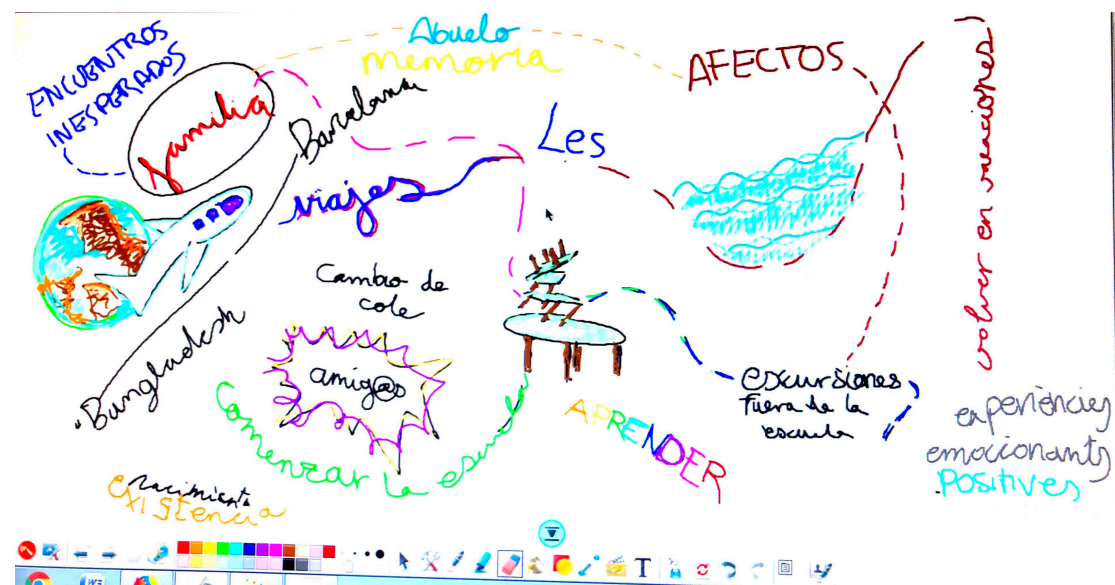 ENCUENTROS
INESPERADOS
familia
Abuelo
memoria
AFECTOS
Barcelona
Les
viajes
volver en vacaciones
Cambio de
cole
amig@s
Bangladesh
Comenzar la escuela
APRENDER
excursiones
fuera de la
escuela
experiències
emocionants
positives
nacimiento
EXISTENCIA
T